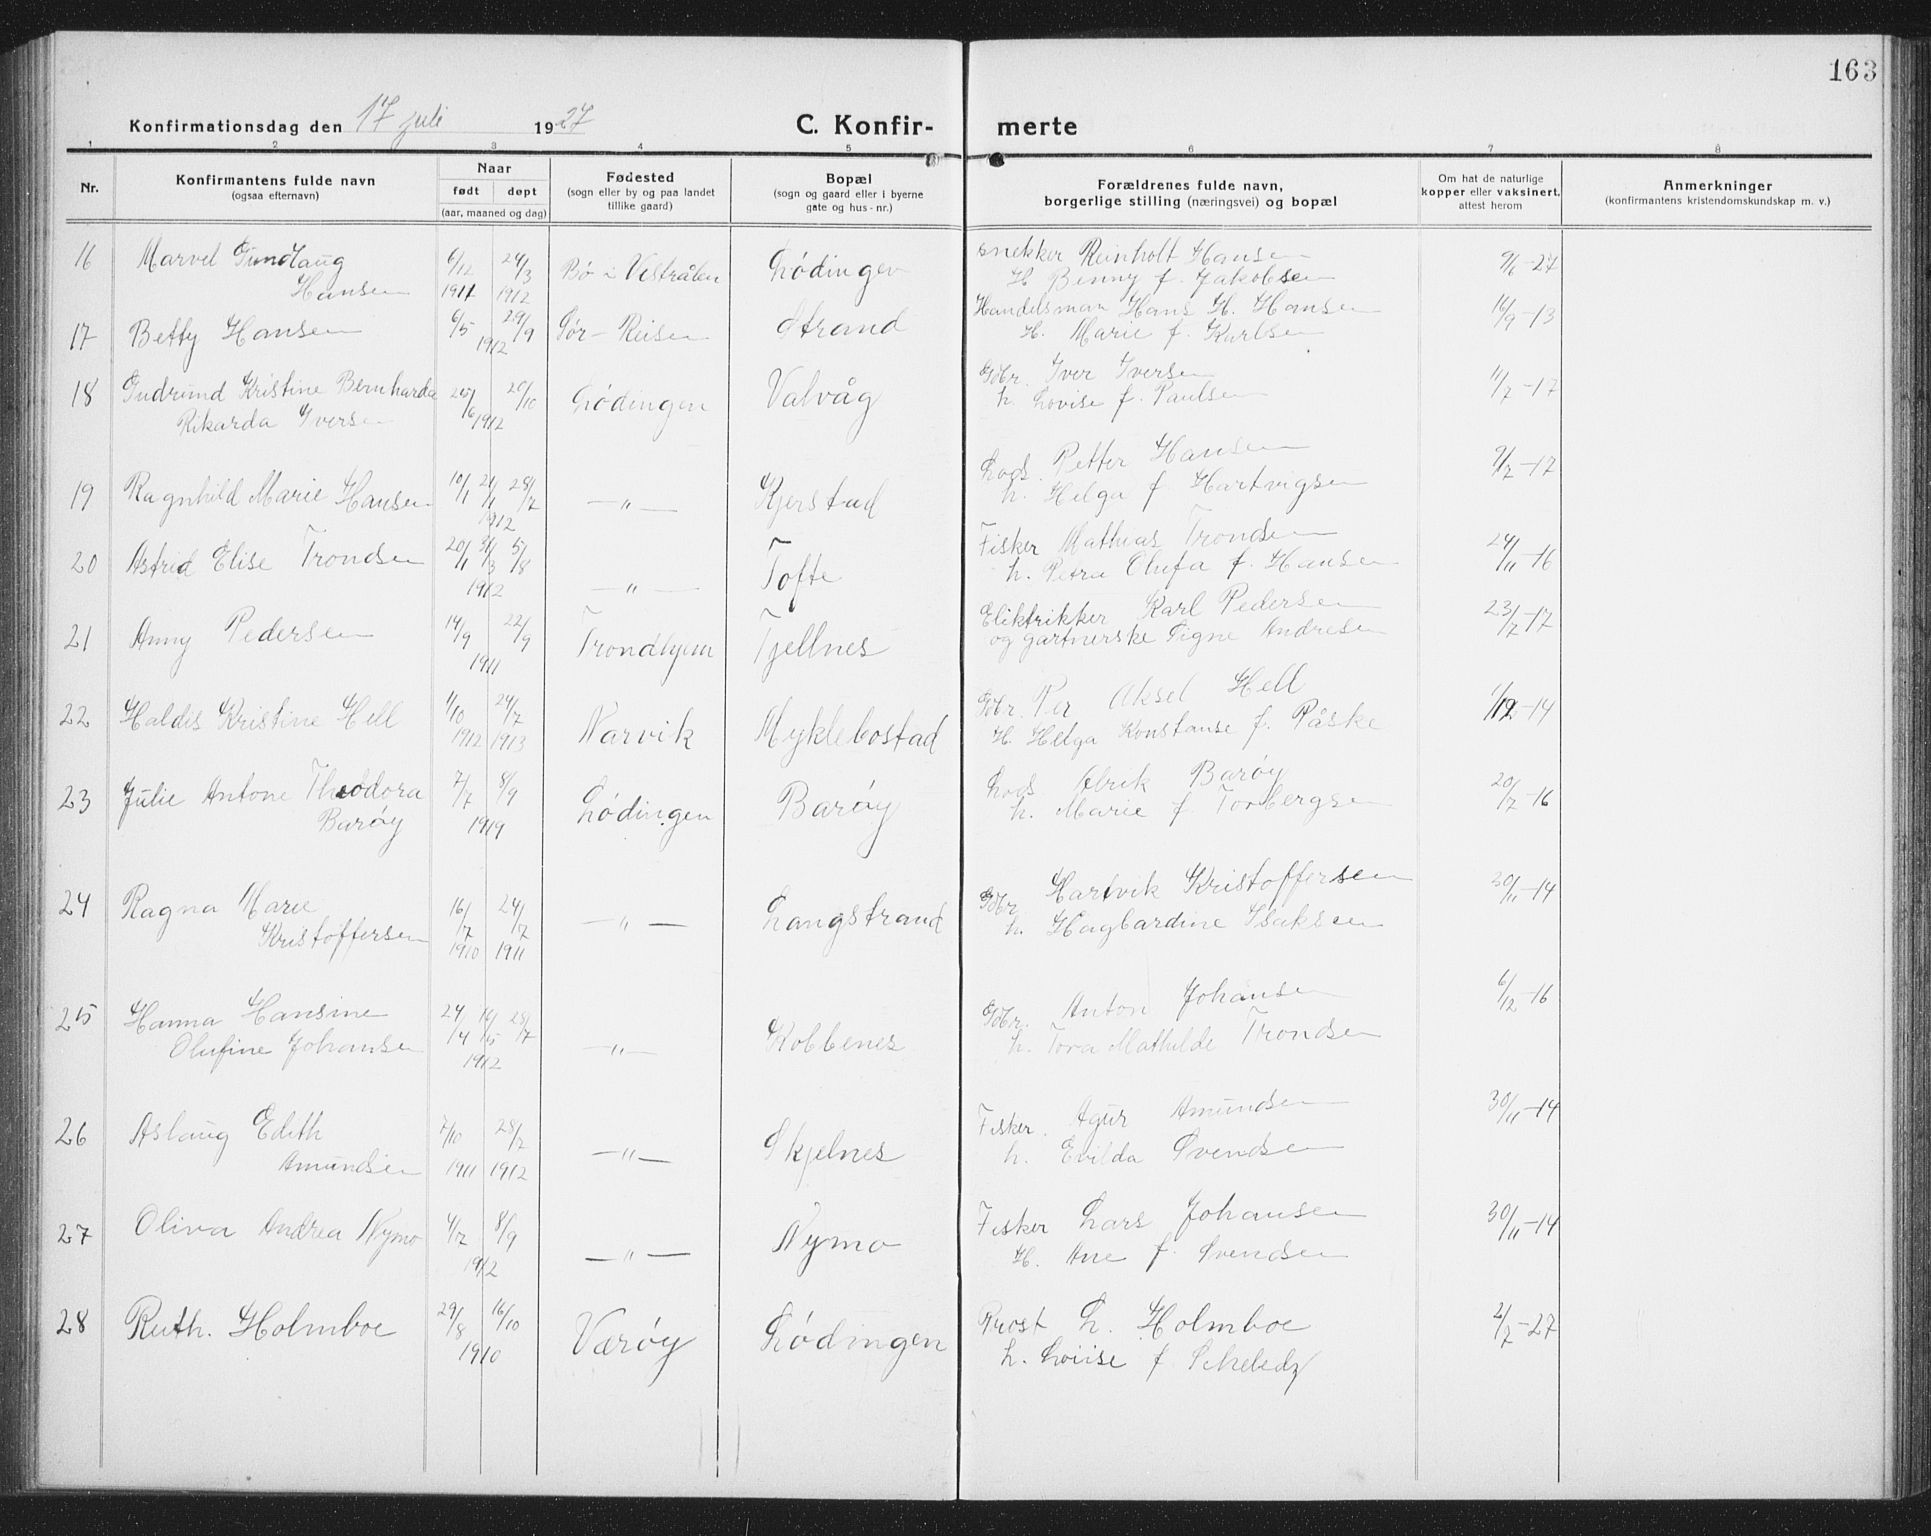 163
Konfirmationsdag den 17 juli 1927
C. Konfir-merte
1 2 3 4 5 6 7 8
Nr.
Konfirmantens fulde navn
(ogsaa efternavn)
Naar
født døpt
(aar, maaned og dag)
Fødested
(sogn eller by og paa landet
tillike gaard)
Bopæl
(sogn og gaard eller i byerne
gate og hus-nr.)
Forældrenes fulde navn,
borgerlige stilling (næringsvei) og bopæl
Om hat de naturlige
kopper eller vaksinert,
attest herom
Anmerkninger
(konfirmantens kristendomskundskap m. v.)
16 Marvel Gunlaug 6/12 24/3 Bø i Vestrålen Lødingen snekker Reinholt Hansen 9/6-27
Hansen 1911 1912 H Benny f. Jakobsen
17 Betty Hansen 6/5 29/9 Sør-Reisen Strand Handelsman Hans H. Hansen 14/9-13
1912 H. Marie f. Karlsen
18 Gudrund Kristine Bernharda 25/6 20/10 Lødingen Valvåg Gdbr. Iver Iversen 11/7-17
Rikarda Iversen 1912 h. Lovise f. Paulsen
19 Ragnhild Marie Hansen 10/1 21/1 28/7 —"— Kjerstad Lods. Petter Hansen 9/7-17
1912 h. Helga f. Hartvigsen
20 Astrid Elise Trondsen 20/1 31/3 5/8 —"— Tofte Fisker Mathias Trondsen 24/11-16
1912 h. Petra Olufa f. Hansen
21 Anny Pedersen 14/9 22/9 Trondhjem Tjellnes Eliktrikker Karl Pedersen 23/7-17
1911 og gartnerske Signe Andresen
22 Haldis Kristine Hell 1/10 24/7 Narvik Myklebostad Gdbr. Per Aksel Hell 1/12-14
1912 1913 H. Helga Konstanse f. Påske
23 Julie Antone Theodora 7/7 8/9 Lødingen Barøy Lods Alrik Barøy 20/7-16
Barøy 1919 h. Marie f Torbergsen
24 Ragna Marie 16/7 24/7 —"— Langstrand Gdbr. Hartvik Kristoffersen 30/11-14
Kristoffersen 1910 1911 h. Hagbardine Isaksen
25 Hanna Hansine 24/4 16/5 28/7 —"— Kobbenes Gdbr. Anton Johansen 6/12-16
Olufine Johansen 1912 h. Tora Mathilde Trondsen
26 Aslaug Edith 7/10 28/7 —"— Skjelnes Fisker. Agur Amundsen 30/11-14
Amundsen 1911 1912 h. Evilda Svendsen
27 Oliva Andrea Nymo 4/7 8/9 —"— Nymo Fisker Lars Johansen 30/11-14
1912 H. Ane f. Svendsen
28 Ruth. Holmboe 29/8 16/10 Værøy Lødingen Prost L. Holmboe 2/7-27
1910 h. Loiise f